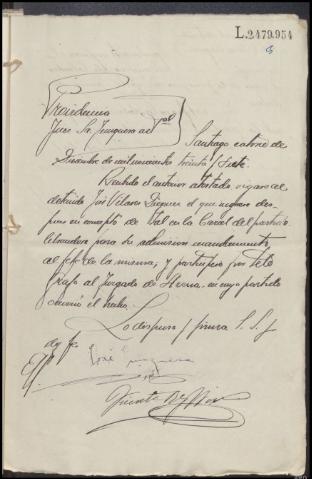 L.2479.954
Providencia
Juez Sr. Junquera acctal
Santiago catorce de
Diciembre de mil novecientos treinta y siete.
Recibido el anterior atestado oigase al
detenido José Vilares Suguer el que
en concepto de tal en la Carcel del partido
librandose para su admision mandamiento
al jefe de la misma, y participese por tele
grafo al Juzgado de, en cuyo partido
ocurrió el hecho.
Lo dispuso y firma S.S. y
doy fe.
José Junquera